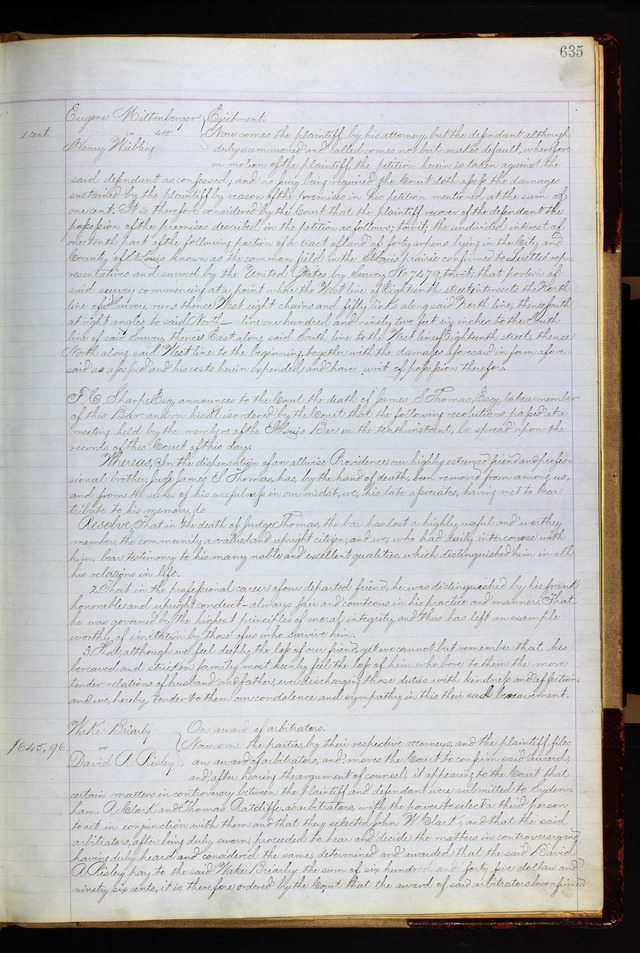 635
Eugene Miltenberger } Ejectment.
1 cent vs Now comes the plaintiff by his attorney, but the defendant although
Henry Wiebling duly summoned and called comes not but makes default, wherefore
on motion of the plaintiff the petition herein is taken against the
said defendant as confessed; and no jury being required, the Court doth assess the damages
sustained by the plaintiff by reason of the premises in his petition mentioned, at the sum of
one cent. It is therefore considered by the Court that the plaintiff recover of the defendant the
possession of the premises described in the petition as follows, towit, the undivided interest of
one tenth part of the following portion of a tract of land of forty arpens lying in the City and
County of St Louis known as the common field in the St Louis prairie confirmed to representatives
resentatives and surveyed by the United States by Survey No towit; that portion of
said survey commencing at a point where the West line of Eighteenth street intersects the North
line of Survey, runs thence West eight chains and fifty links along said North line, thence South
at right angles to said North line one hundred and ninety two feet six inches to the South
line of said Survey, thence East along said South line to the West line of Eighteenth street, thence
North along said West line to the beginning, together with the damages aforesaid in form afore-
said assessed and his costs herein expended, and have writ of possession therefor.
F. C. Sharp Esq, announces to the Court the death of James S Thomas, Esq, late a member
of this Bar and on his it is ordered by the Court that the following resolutions passed at a
meeting held by the members of the St Louis Bar on the tenth instant, be spread upon the
records of this Court of this day.
Whereas, In the dispensation of an allwise Providence our highly esteemed friend and profes-
sional brother, Judge James S Thomas has, by the hand of death, been removed from among us,
and from the scene of his usefulness in our midst, we, his late associates, having met to bear
tribute to his memory, do
Resolve, That in the death of Judge Thomas, the bar has lost a highly useful and worthy
member, the community a valued and upright citizen, and we, who had daily intercourse with
him, bear testimony to his many noble and excellent qualities, which distinguished him in all
his relations in life.
2. That in the professional career of our departed friend, he was distinguished by his frank,
honorable and upright conduct – always fair and courteous in his practice and manner. That
he was governed by the highest principles of moral integrity, and thus has left an example
worthy of imitation by those of us who survive him.
3. That, although we feel deeply the loss of our friend, yet we cannot but remember that his
bereaved and stricken family most keenly feel the loss of him who bore to them the more
tender relations of husband and father, ever discharging those duties with kindness and affection,
and we, hereby, tender to them our condolence and sympathy in this their sad bereavement.
Wake Briarly On award of arbitrators.
$645.96. vs } Now come the parties by their respective attorneys, and the plaintiff files
David A Risley an award of arbitrators, and moves the Court to confirm said award,
and, after hearing the argument of counsel, it appearing to the Court that
certain matters in controversy between the plaintiff and defendant were submitted to Syden-
ham A Clark and Thomas Ratcliffe, as arbitrators, with the power to select a third person
to act in conjunction with them and that they selected John W Clark, and that the said
arbitrators, after being duly sworn, proceeded to hear and decide the matters in controversy and
having duly heard and considered the same, determined and awarded that the said David
A Risley pay to the said Wake Briarly the sum of six hundred and forty five dollars and
ninety six cents, it is therefore ordered by the Court that the award of said arbitrators be confirmed